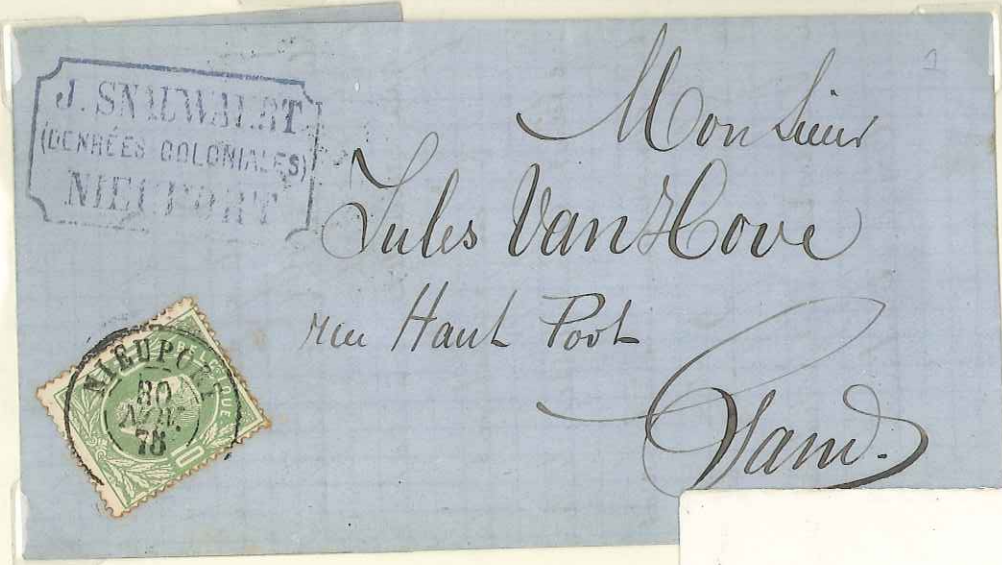 J. SNAUWAERT
(DENRÉES COLONIALES)
NIEUPORT
Monsieur
Jules Van Hove
rue Haut Port
Gand.
NIEUPORT
30
NOV.
78
BELGIQUE
10